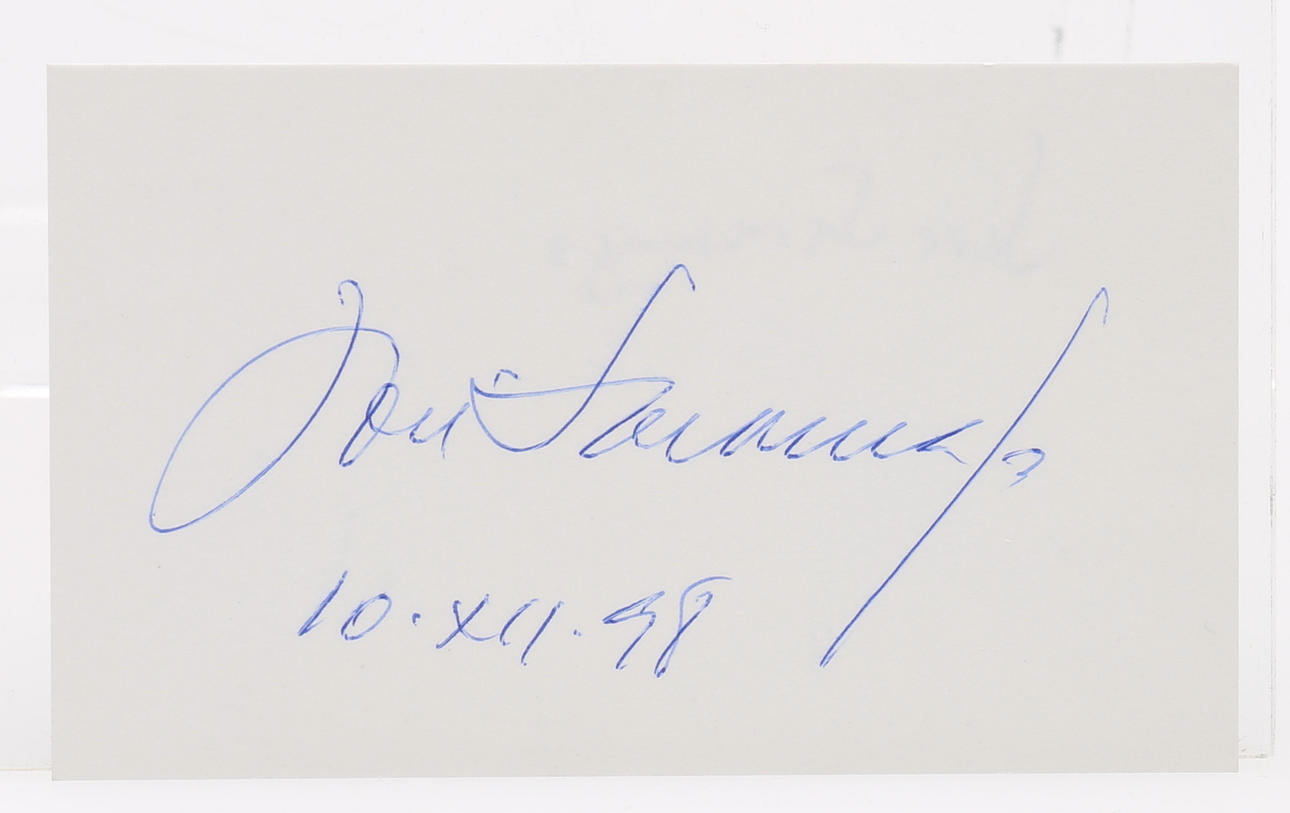 José Saramago
10.XII.98